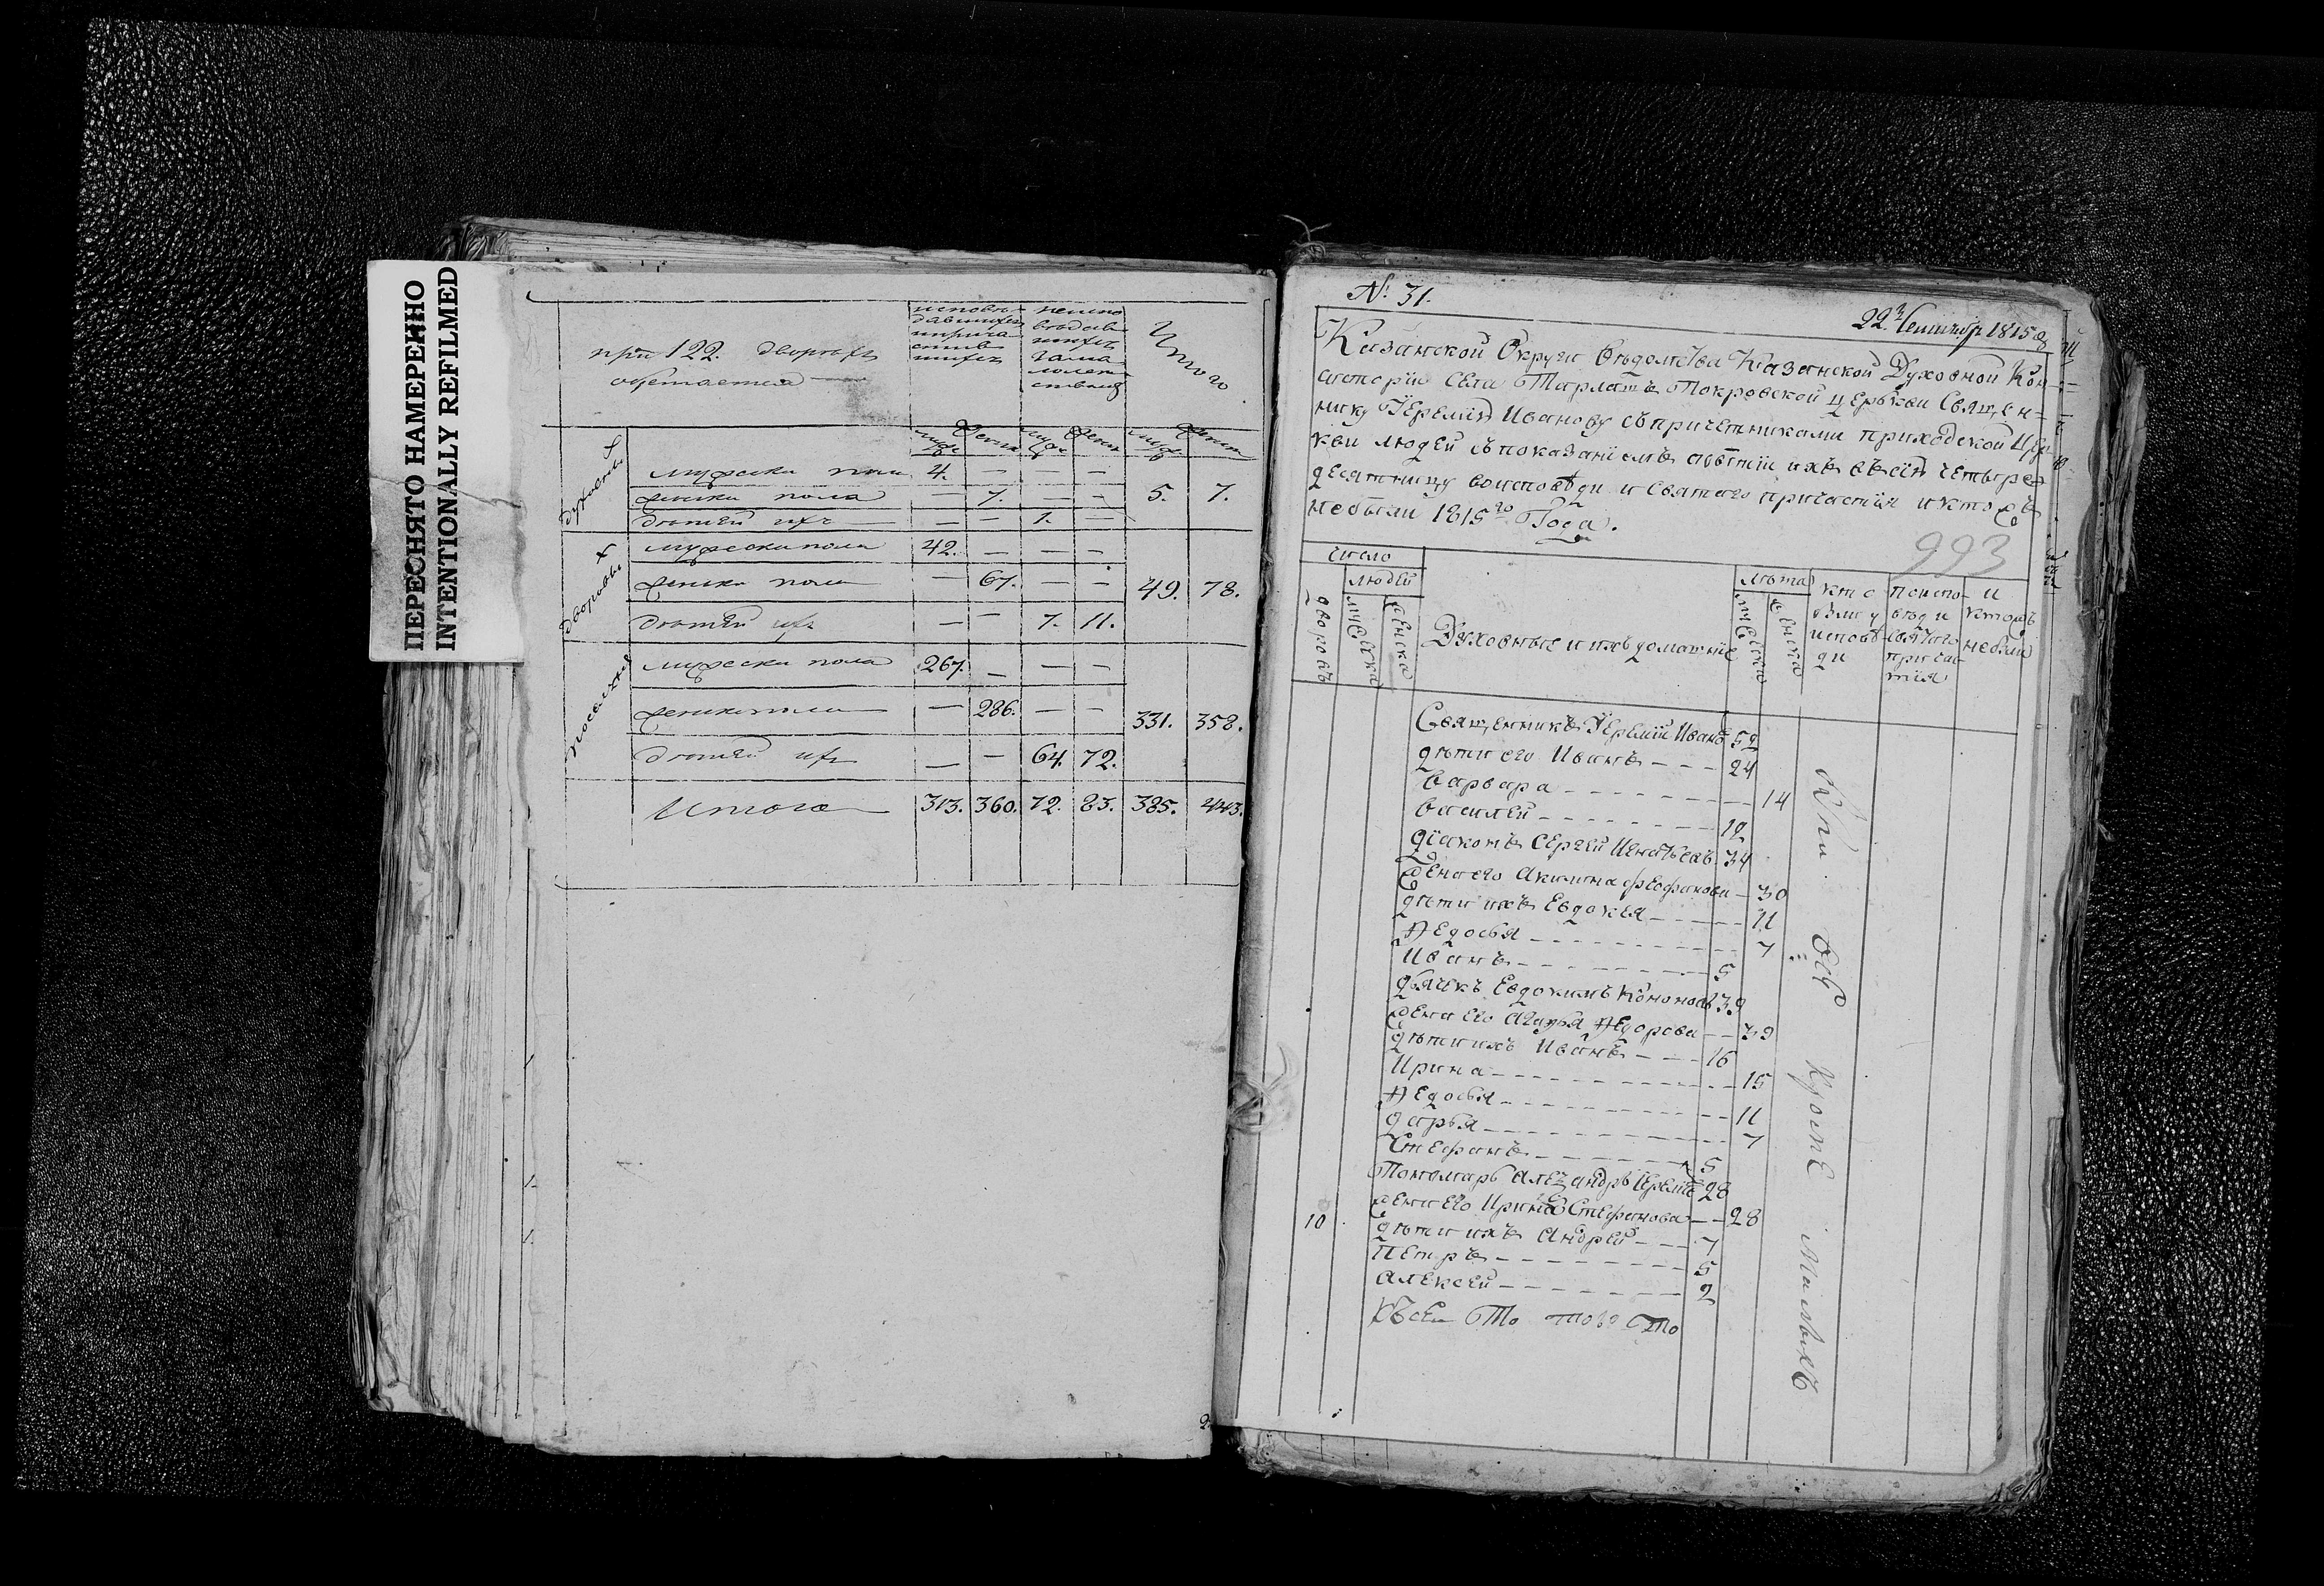 ПЕРЕСНЯТО НАМЕРЕННО
INTENTIONALLY REFILMED
при 122. дворахъ
обретается
исповѣ-
давшихся
и прича
стив
шихся
неиспо
вѣдав
шихся
за мало
летствомъ
Итого
муж женск муж женск муж женск
духовны
мужеска пола 4. — — — 5. 7.
женска пола — 7. — —
дѣтей ихъ — — 1. —
дворовы
мужеска пола 42. — — — 49. 78.
женска пола — 67. — —
дѣтей ихъ — — 7. 11.
поселяне
мужеска пола 267. — — — 331. 358.
женска пола — 286. — —
дѣтей ихъ — — 64. 72.
Итого 313. 360. 72. 83. 385. 443.
№ 31.
22. Сентябр 1815
Казанской Округи Вѣдомства Казанской Духовной Кон-
систоріи Села Тарлашъ Покровской церькви Священ-
нику Іеремію Иванову съ причетниками приходской Цер
кви людей съ показаніемъ бытіи ихъ въ сію четыре
десятницу во исповѣди и святаго причастія и кто жъ
не были 1815го Года.
993
число
людей
дворовъ
мужеска
женска
Духовные и ихъ домашние
лѣта
мужеска
женска
кто
былъ у
исповѣ
ди
и испо-
вѣди и
святаго
прича-
тія
и
которъ
не были
Священникъ Іеремій Ивановъ 52
дѣти его Иванъ 24
Варвара 14
Василей 12
діаконъ Сергей Игнатьевъ 34
жена его Акилина Феофанова 30
дѣти ихъ Евдокея 11
Федосья 7
Иванъ 5
дьячекъ Евдокимъ Кононовъ 39
жена его Агафья Федорова 39
дѣти ихъ Иванъ 16
Ирина 15
Федосья 11
дарья 7
Стефанъ 5
Пономарь Александръ Іереміевъ 28
10 жена его Ирина Стефанова 28
дѣти ихъ Андрей 7
Петръ 5
Алексей 2
къ сей
Вси были Кроме Малыхъ